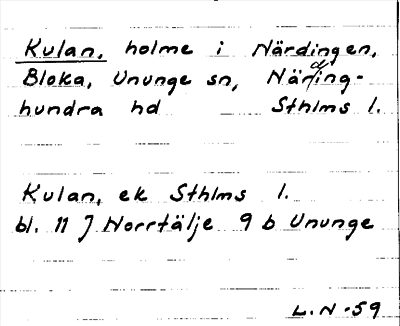 Kulan, holme i Närdingen,
Bloka, Ununge sn, Närding-
hundra hd Sthlms l.
Kulan, ek Sthlms l.
bl. 11 J Norrtälje 9 b Ununge
L.N -59